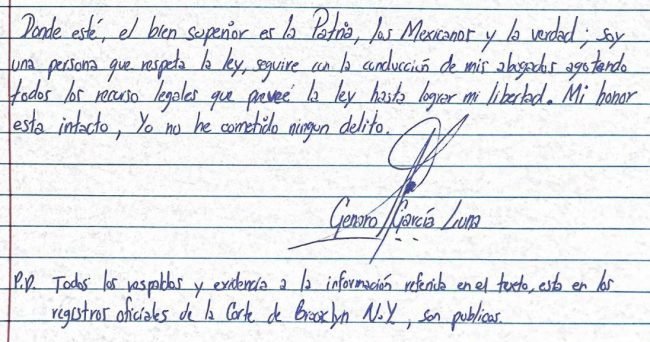 Donde esté, el bien superior es la Patria, los Mexicanos y la verdad; soy
una persona que respeta la ley, seguire con la conducción de mis abogados agotando
todos los recurso legales que preveé la ley hasta lograr mi libertad. Mi honor
esta intacto, Yo no he cometido ningun delito.
Genaro García Luna
P.D. Todos los respaldos y evidencia a la información referida en el texto, esta en los
registros oficiales de la Corte de Brooklyn N.Y, son publicos.